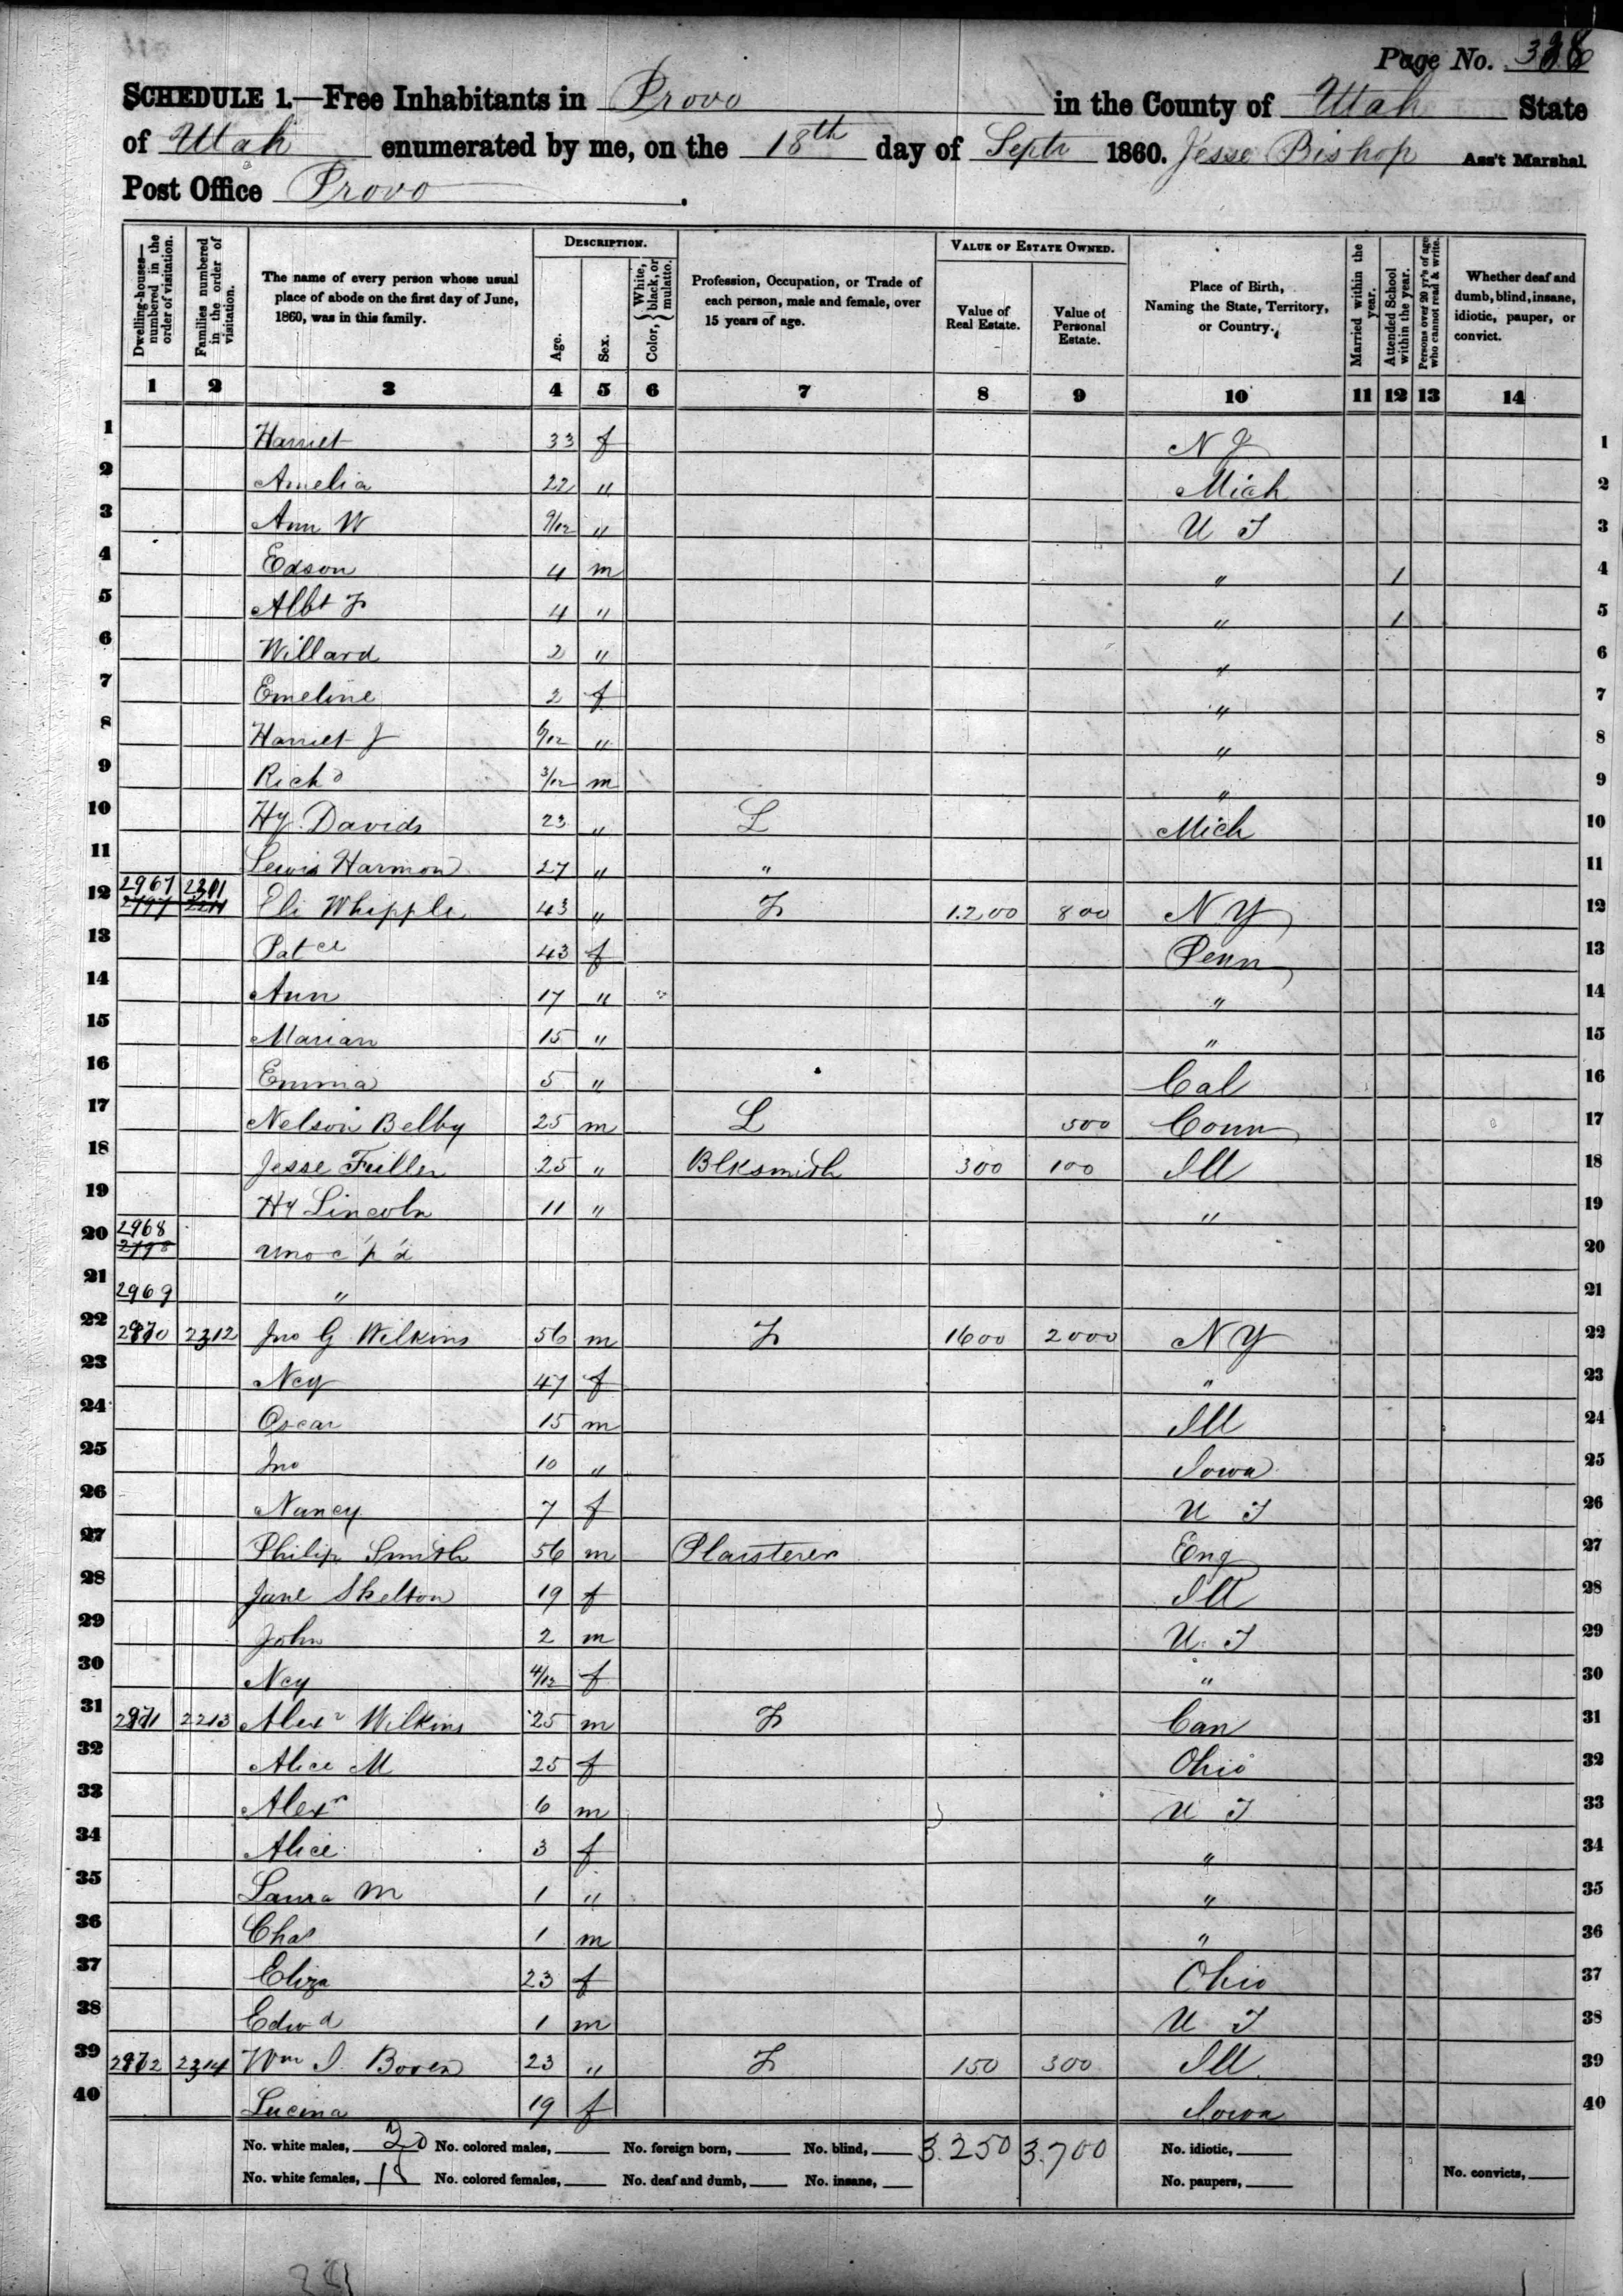 Page No. 338
SCHEDULE 1.—Free Inhabitants in Provo in the County of Utah State
of Utah enumerated by me, on the 18th day of Septr 1860. Jesse Bishop Ass't Marshal.
Post Office Provo.
Dwelling-houses—numbered in the order of visitation. Families numbered in the order of visitation. The name of every person whose usual place of abode on the first day of June, 1860, was in this family. Description. Age. Sex. Color, {White, black, or mulatto. Profession, Occupation, or Trade of each person, male and female, over 15 years of age. Value of Estate Owned. Value of Real Estate. Value of Personal Estate. Place of Birth, Naming the State, Territory, or Country. Married within the year. Attended School within the year. Persons over 20 yr's of age who cannot read & write. Whether deaf and dumb, blind, insane, idiotic, pauper, or convict.
1 2 3 4 5 6 7 8 9 10 11 12 13 14
1 Harriet 33 f N J 1
2 Amelia 22 " Mich 2
3 Ann W 9/12 " U T 3
4 Edson 4 m " 1 4
5 Albt F 4 " " 1 5
6 Willard 2 " " 6
7 Emeline 2 f " 7
8 Harriet J 6/12 " " 8
9 Richd 3/12 m " 9
10 Hy Davids 23 " L Mich 10
11 Lewis Harmon 27 " " 11
2967 2311
12 2797 Eli Whipple 43 " F 1.200 800 N Y 12
13 Patce 43 f Penn 13
14 Ann 17 " " 14
15 Marian 15 " " 15
16 Emma 5 " Cal 16
17 Nelson Belby 25 m L 500 Conn 17
18 Jesse Fuller 25 " Blksmith 300 100 Ill 18
19 Hy Lincoln 11 " " 19
2968
20 2798 unoc'p'd 20
21 2969 " 21
22 2970 2312 Jno G Wilkins 56 m F 1600 2000 N Y 22
23 Ncy 47 f " 23
24 Oscar 15 m Ill 24
25 Jno 10 " Iowa 25
26 Nancy 7 f U T 26
27 Philip Smith 56 m Plaisterer Eng 27
28 Jane Skelton 19 f Ill 28
29 John 2 m U T 29
30 Ncy 4/12 f " 30
31 2971 2213 Alexr Wilkins 25 m F Can 31
32 Alice M 25 f Ohio 32
33 Alexr 6 m U T 33
34 Alice 3 f " 34
35 Laura M 1 " " 35
36 Chas 1 m " 36
37 Eliza 23 f Ohio 37
38 Edwd 1 m U T 38
39 2972 2314 Wm I. Boren 23 " F 150 300 Ill 39
40 Lucina 19 f Iowa 40
No. white males, 20 No. colored males, No. foreign born, No. blind, 3.250 3.700 No. idiotic,
No. white females, 18 No. colored females, No. deaf and dumb, No. insane, No. paupers, No. convicts,